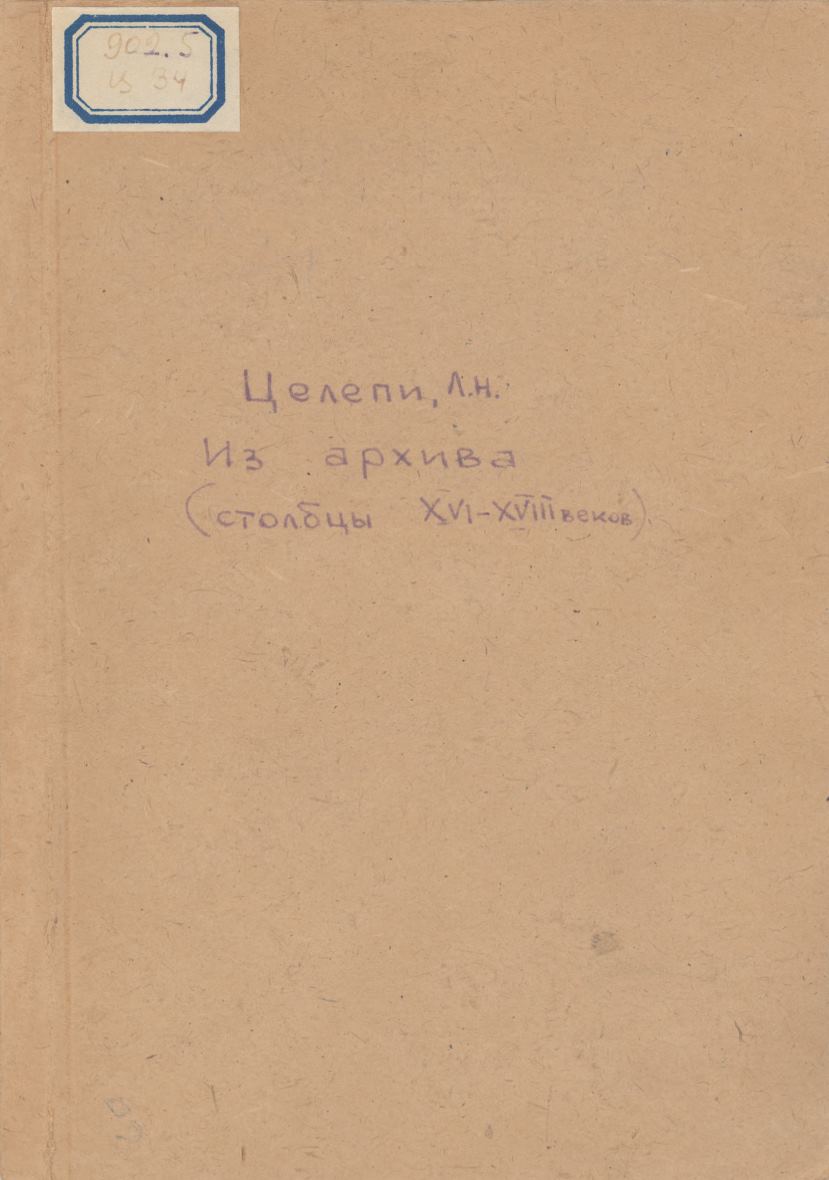 902.5
Ц 34
Целепи, Л.Н.
Из архива
(столбцы XVI-XVIII веков).